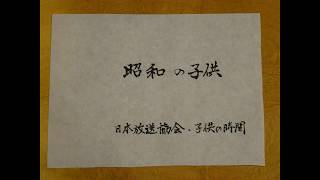 昭和の子供
日本放送協会・子供の時間